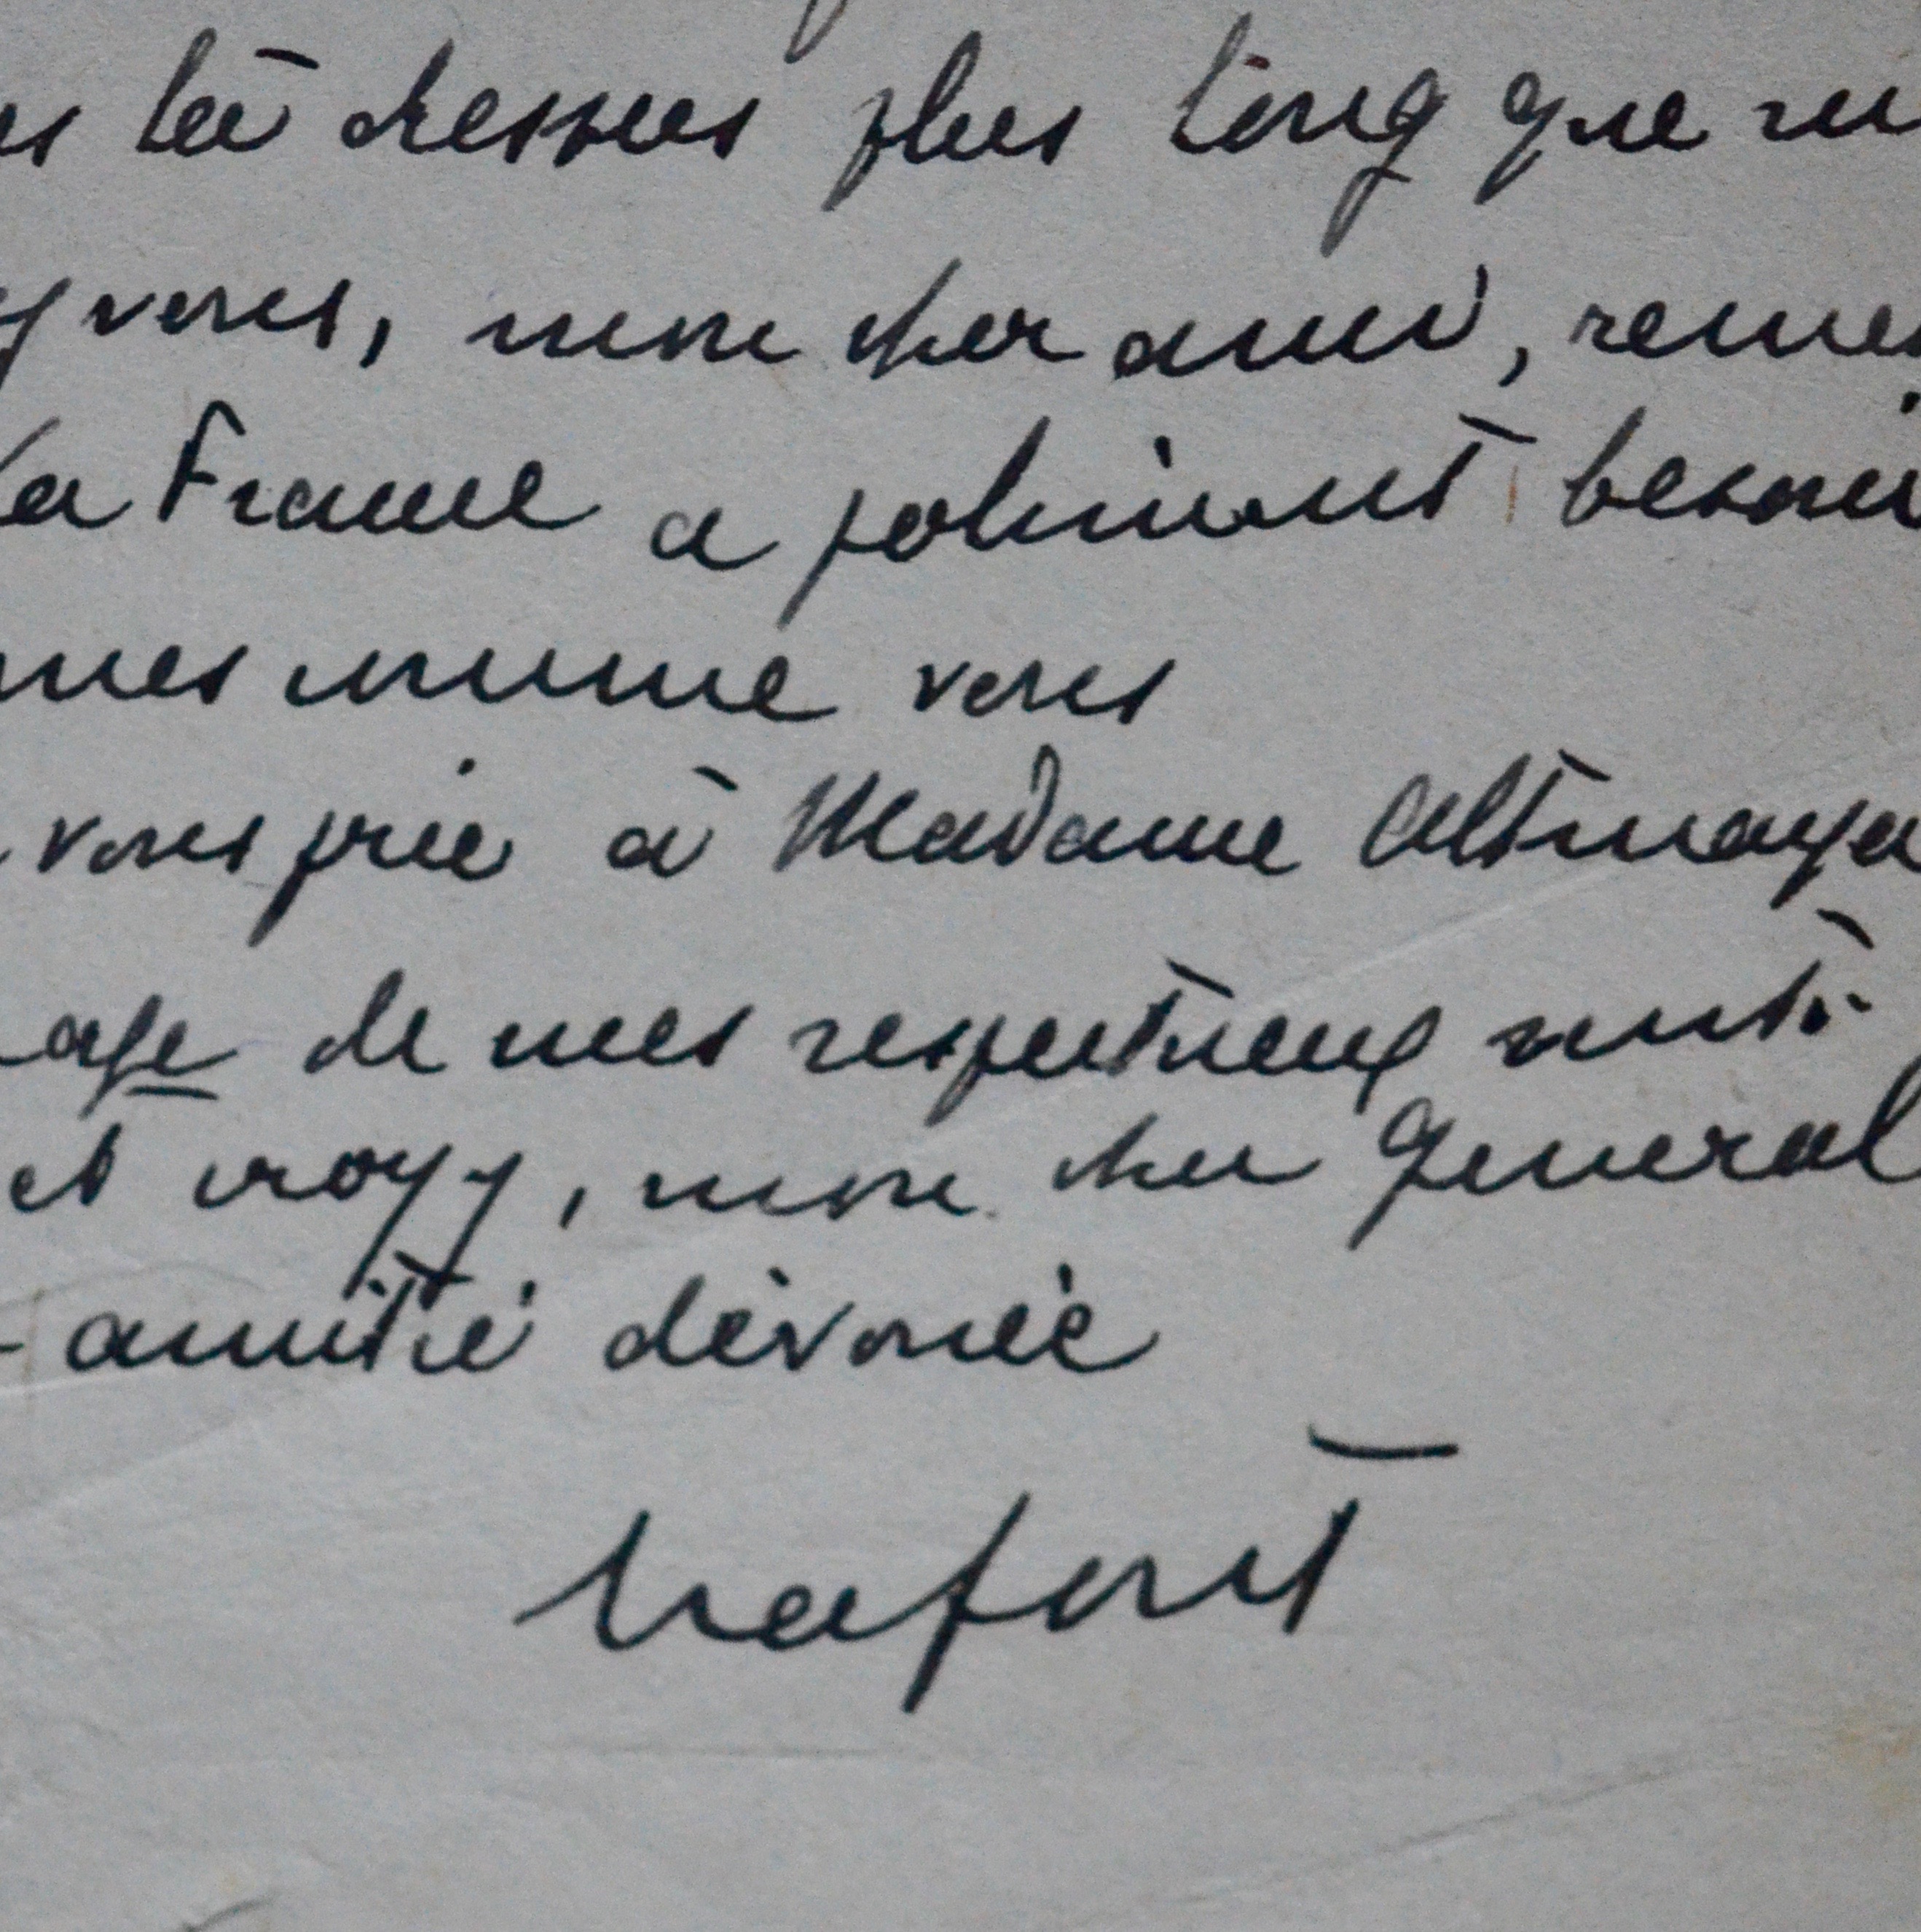 là dessus plus long que
vous, mon cher ami,
La France a joliment besoin
mes comme vous
vous prie à Madame Altmayer
age de mes respectueux senti-
et croyez, mon cher General
amitié dévouée
Lafont